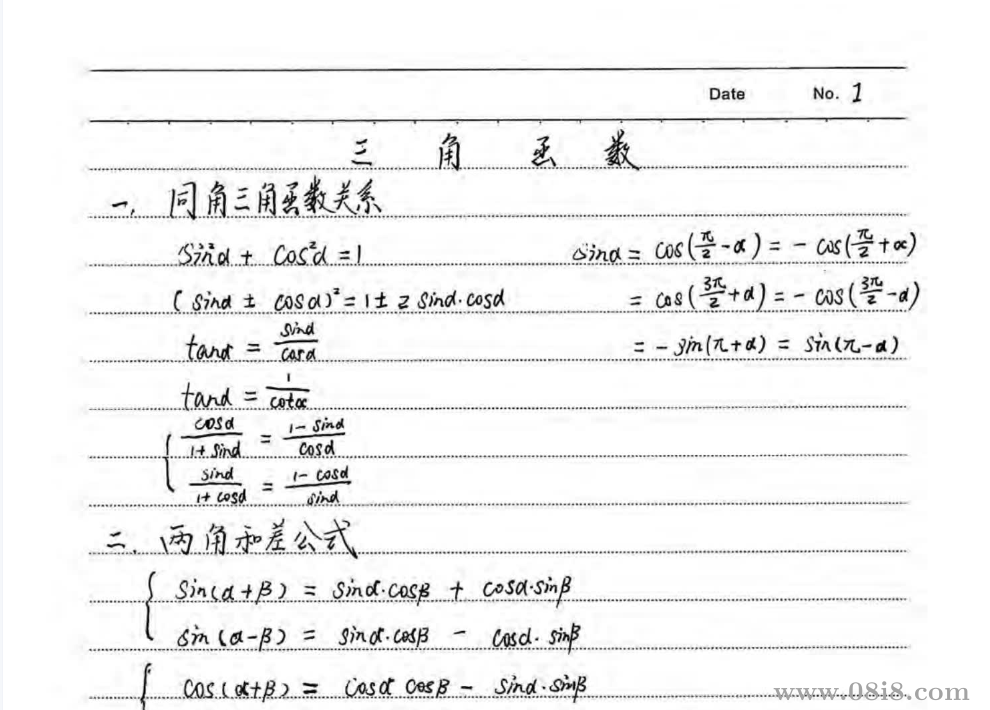 Date No. 1
三角函数
一、同角三角函数关系
sin²α + cos²α = 1
(sinα ± cosα)² = 1 ± 2 sinα·cosα
tanα = sinα/cosα
tanα = 1/cotα
cosα/(1+sinα) = (1-sinα)/cosα
sinα/(1+cosα) = (1-cosα)/sinα
sinα = cos(π/2-α) = -cos(π/2+α)
= cos(3π/2+α) = -cos(3π/2-α)
= -sin(π+α) = sin(π-α)
二、两角和差公式
sin(α+β) = sinα·cosβ + cosα·sinβ
sin(α-β) = sinα·cosβ - cosα·sinβ
cos(α+β) = cosα cosβ - sinα·sinβ
www.08i8.com